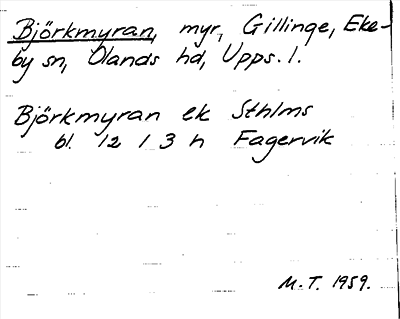 Björkmyran, myr, Gillinge, Eke-
by sn, Olands hd, Upps. l.
Björkmyran ek Sthlms
bl. 12 1 3 h Fagervik
M.T. 1959.